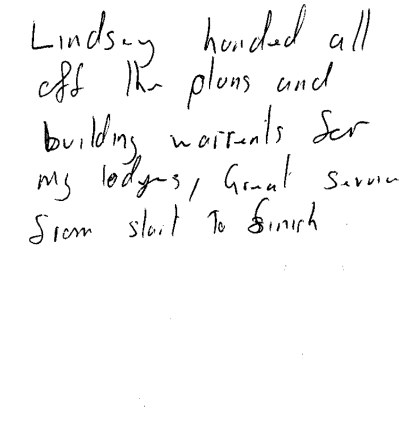 Lindsay handed all
off the plans and
building warrents for
my lodges, Great Service
from start To finish